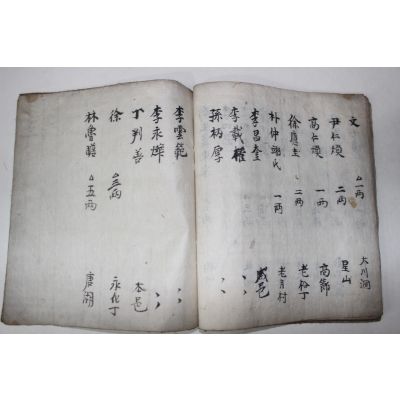 文 △一兩 大川洞
尹仁煥 二兩 星山
高仁煥 一兩 高節
徐應圭 二兩 老松丁
朴仲 氏 一兩 老月村
李昌奎 咸邑
李載權 〃
孫炳厚 〃
李雲範 〃
李永 〃
卞判善 本邑
徐 △三兩 永化丁
林魯 △五兩 唐湖